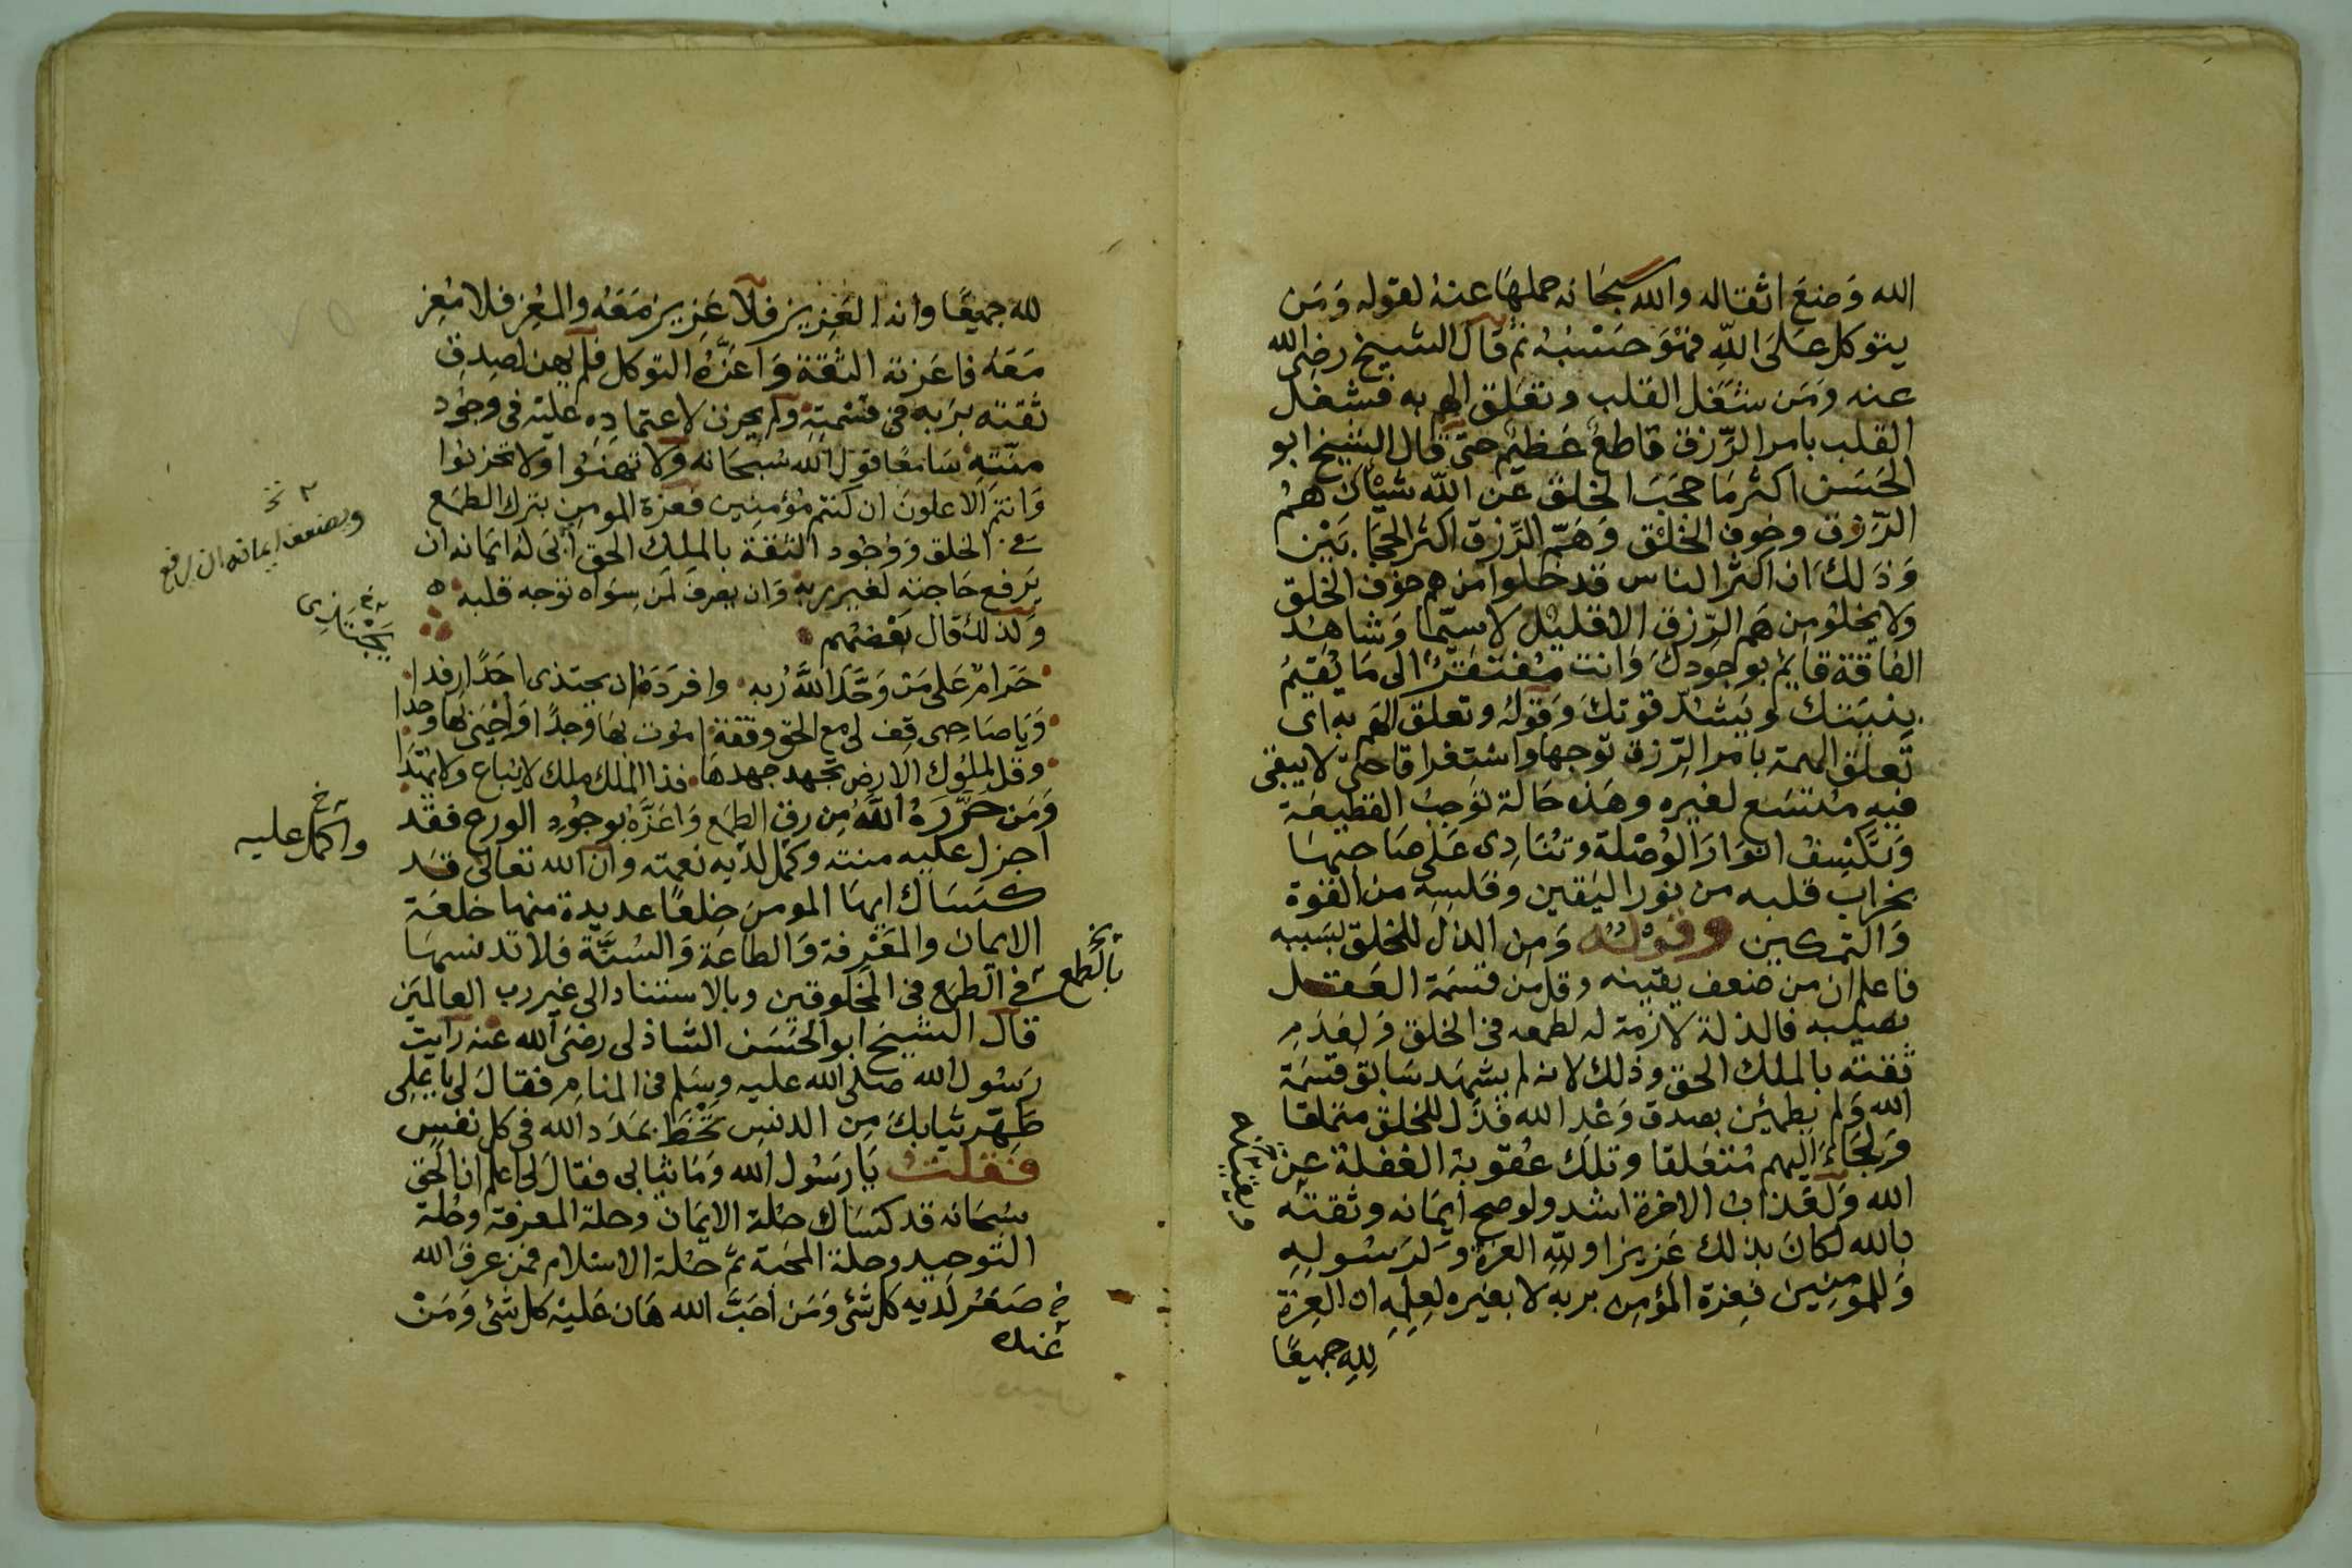 الله وَضعَ اثقاله والله سبحانه حملها عنهُ لقوله وَمَن
يتوكل عَلَى اللهِ فهْوَ حَسْبُهُ ثم قال الشيخ رضى الله
عنه وَمَن شغَل القلب وتعَلق الهم به فشغل
القلب بامر الرّزق قاطعٌ عَظيم حتى قال الشيخ ابو
الحَسَن اكثر مَا حجَبَ الخلق عن الله شيْأن همُ
الرّزق وخوف الخلق وَهَمّ الرّزق اكثر الحجابَيْن
وَذلك ان اكثر الناس قد خلوا من هم خوف الخلق
ولا يخلوُ من هَم الرّزق الا قليل لاسيّما وَشاهِدُ
الفاقة قايم بوجودك وَانت مُفتقرٌ الى مَا يُقيمُ
بنيتك ويَشدّ قوتك وَقولهُ وتعلق الهَم به اى
تعلق الهمة بامر الرّزق توجها واستِغراقا حتى لا يبقى
فيهِ مُتسَع لغيره وهَذه حَالة توجبُ القطيعَة
وَتكسِفُ انوَارَ الوُصْلة وتُنادِى عَلى صَاحبهَا
بخراب قلبه من نور اليَقين وَفلسِهِ من القوة
وَالتمكين وقولهُ وَمِن الذل للخلق بسَببه
فاعلم ان من ضعف يقينه وقل من قسمَة العَقل
نصيبه فالذلة لازمة له لطمعه فى الخلق وَلعدَمِ
ثقته بالملك الحق وذلك لانه لم يشهَد سَابق قسمَة
الله وَلم يطمئن بصدق وَعْدِ الله فذل للخلق متملقا
وَلجَاءَ اليهم مُتعَلقا وتلك عُقوبة الغفلة عن
الله وَلعَذابُ الاخرة اشد ولو صح ايمَانه وثقته
بالله لكانَ بذلك عَزيزا ولله العزة وَلرَسُولِهِ
وَللمومنينَ فعِزة المؤمِن بربهِ لا بغيره لعِلمِهِ ان العِزة
لِلهِ جميعًا
لله جميعًا وانه العَزيز فلا عَزيز مَعَهُ والمُعِز فلا مُعِز
مَعَهُ فاعَزته الثقة وَاعَزّهُ التوكل فلم يهن لصِدق
ثقته برَبه فى قسْمتِهِ ولم يحزن لاعتمادِهِ عليْه فى وجُود
منّتِهِ سَامعًا قول الله سُبحَانه ولا تهنُوا ولا تحزنوا
وَانتم الاعلونَ ان كنتم مُؤمنِين فعزة المومن بترك الطمَع
فى الخلق وَوُجُود الثقة بالمَلِك الحق أبَى لهُ ايمَانه ان
يَرفع حَاجته لغير ربه وَان يعرفَ لمَن سِوَاه توجه قلبه
وَلذلك قال بَعْضهُم
حَرَامٌ عَلى مَن وَحَّدَ اللهَ رَبه وافرَدَهُ ان يجتذى احَدًا رفدا
وَيَا صَاحبى قِف لى مع الحق وقفة امُوت بهَا وَجدًا وَاحْيَى بهَا وجدا
وقل لملوُك الارض تجهد جهدهَا فذا الملك ملك لا يُباع وَلا يهْدَا
وَمَن حَرَّرَهُ اللهُ مِن رق الطمَع وَاعَزَّهُ بوجُودِ الورع فقد
اجزل عليه منته وكمّل لدَيه نعمته وان الله تعالى قد
كسَاك ايهَا المومن خِلعًا عديدة منها خلعَة
الايمان والمَعْرفة وَالطاعَة وَالسُنّة فلا تدنسهَا
فى الطمَع فى المخلوقين وبالاستناد الى غير رب العالمَين
قال الشيخ ابو الحَسَن الشاذلى رضىَ الله عنه رَايت
رَسُول الله صَلى الله عليه وسَلم فى المنام فقالَ لى يا على
طهّر ثيَابكَ مِن الدنس تحْظَ بمَدَد الله فى كل نفس
فقلت يَا رَسُول الله وَمَا ثيَابى فقالَ لى اعلم ان الحَق
سبحَانه قد كسَاك حلة الايمَان وحلة المعرفة وحُلة
التوحيد وحلة المحبة ثم حُلة الاسلام فمن عرفَ الله
صَغرَ لدَيه كل شئ وَمَن احَبَّ الله هَان عَليْه كل شئ وَمَنْ
عنده
وبضعف ايمانه ان يرفع
يَجْتَدِى
واكمل عليه
بالطمع